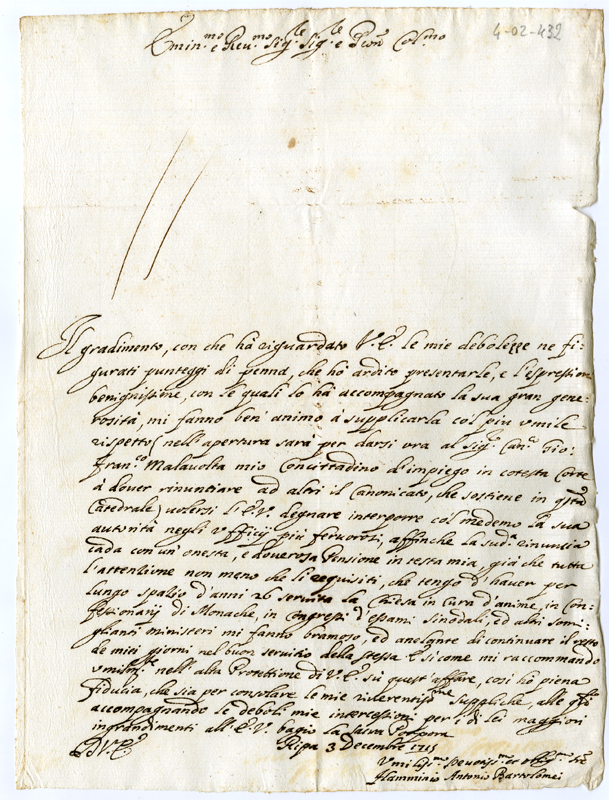 4-02-432
Emin.mo e Reu.mo Sig.re Sig.re e Pron Col.mo
Il gradimento, con che hà riguardato V.E. le mie debolezze ne fi-
gurati punteggi di penna, che hò ardito presentarle, e l'espressioni
benignissime, con le quali lo hà accompagnato la sua gran gene-
rosità, mi fanno ben' animo à supplicarla col più vmile
rispetto (nell'apertura sarà per darsi ora al Sig.r Can.co Gio:
Fran.co Malavolta mio Concittadino d'impiego in cotesta Corte
à dover rinuntiare ad altri il Canonicato, che sostiene in q.sta
Catedrale) uolersi l'E.V. degnare interporre col medemo la sua
autorità negli vfficij più feruorosi, affinche la sud.a rinuncia
cada con un' onesta, e douerosa Pensione in testa mia, già che tutta
l'attenzione non meno che li requisiti, che tengo d'hauer per
lungo spazio d'anni 26 seruita la Chiesa in cura d'anime, in Con-
fessionarij di Monache, in Congressi d'esami sinodali, ed altri somi-
glianti ministeri mi fanno bramoso, ed anelante di continuare il resto
de miei giorni nel buon seruitio della stessa E sicome mi raccommando
vmilm.te nell'alta Protettione di V.E. in quest'affare, così hò piena
fiducia, che sia per consolare le mie riuerentiss.me suppliche, alle q.li
accompagnando le deboli mie intercessioni per i di lei maggiori
ingrandimenti all'E.V. bagio la Sacra Porpora
D.V.E. Ripa 3 Decembre 1715
Vmiliss.mo Deuotiss.mo et obblig.mo Se.re
Flamminio Antonio Bartolomei